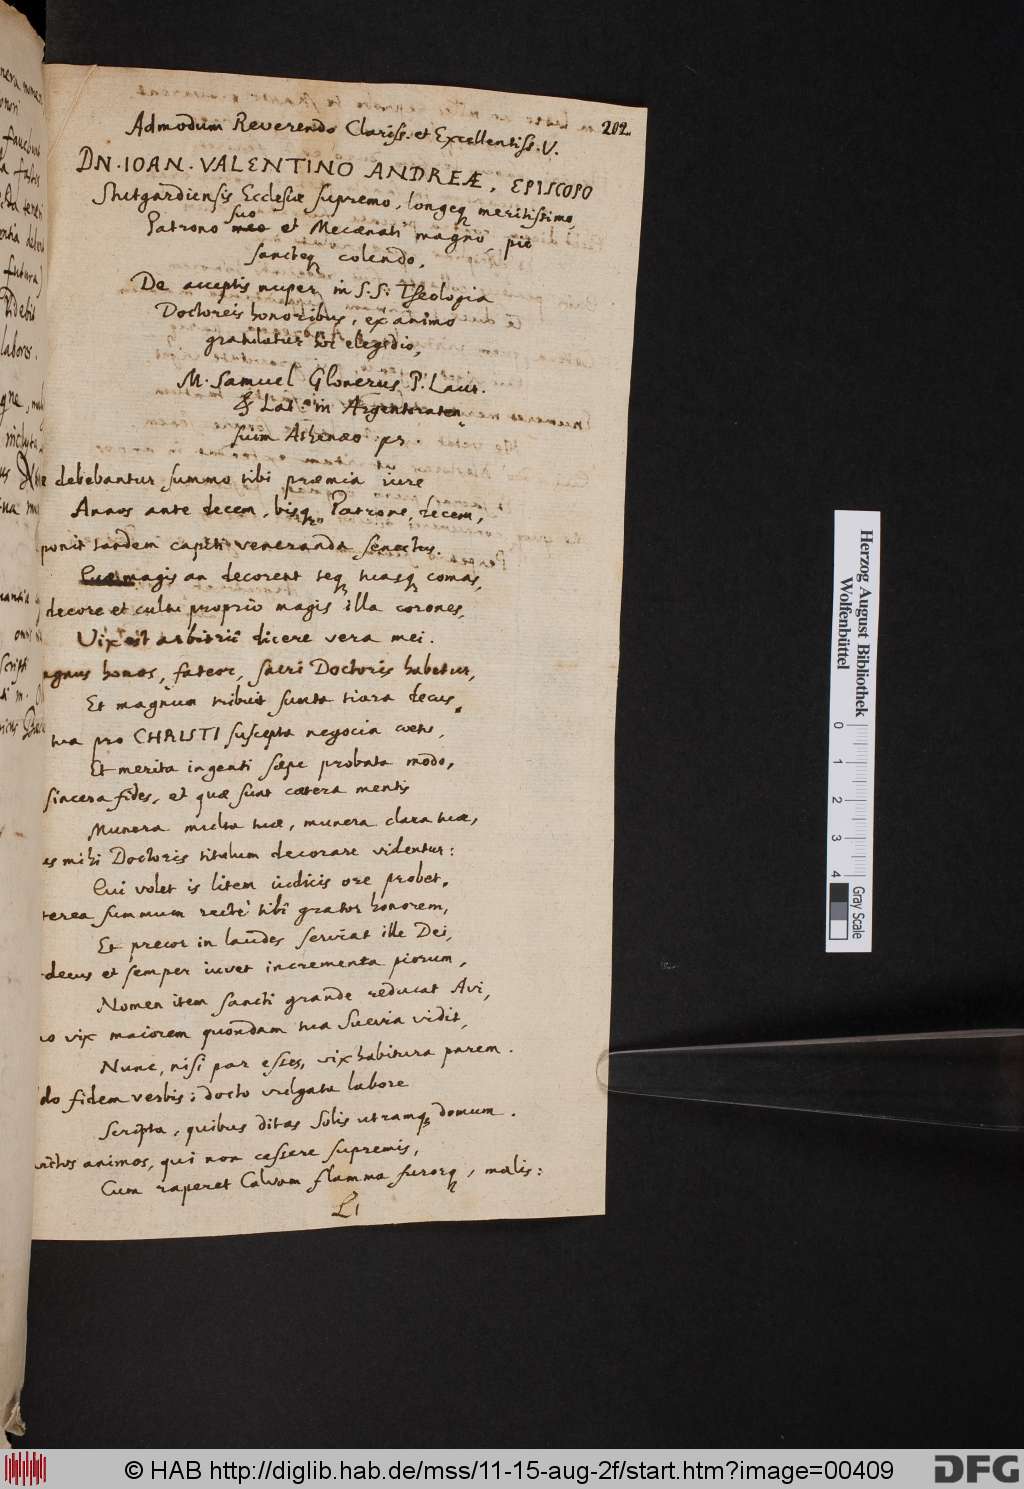 202.
Admodum Reverendo Clariss. et Excellentiss. V.
DN. IOAN. VALENTINO ANDREÆ, EPISCOPO
Stutgardiensis Ecclesiæ supremo, longeq meritissimo,
suo
Patrono meo et Mecœnati magno, piè
sancteq colendo,
De acceptis nuper in S.S. Theologia
Doctoreis honoribus, ex animo
gratulatur hoc elegidio,
M. Samuel Glonerus P. Laur.
& Lat. in Argentoraten
sium Athenæo pr
debebantur summo tibi præmia iure
Annos ante decem, bisq, Patrone, decem,
ponit tandem capiti veneranda senectus.
magis an decorent teq tuasq comas,
decore et cultu proprio magis illa corones,
Vix est arbitrii dicere vera mei.
honos, fateor, sacri Doctoris habetur,
Et magnum tribuit iuncta tiara decus.
tua pro CHRISTI suscepta negocia coetu,
Et merita ingenti sæpe probata modo,
sincera fides, et quæ sunt cætera mentis
Munera multa tuæ, munera clara tuæ,
as mihi Doctoris titulum decorare videntur:
Cui volet is litem iudicis ore probet.
terea summum rectè tibi grator honorem,
Et precor in laudes serviat ille Dei,
decus et semper iuvet incrementa piorum,
Nomen item sancti grande reducat Avi,
uo vix maiorem quondam tua Suevia vidit,
Nunc, nisi par esses, vix habitura parem.
do fidem verbis: docto vulgata labore
Scripta, quibus ditas Solis utramq domum.
animos, qui non cessere supremis,
Cum raperet Calvam flamma furorq, malis:
Herzog August Bibliothek
Wolfenbüttel
0 1 2 3 4
Gray Scale
© HAB http://diglib.hab.de/mss/11-15-aug-2f/start.htm?image=00409
DFG